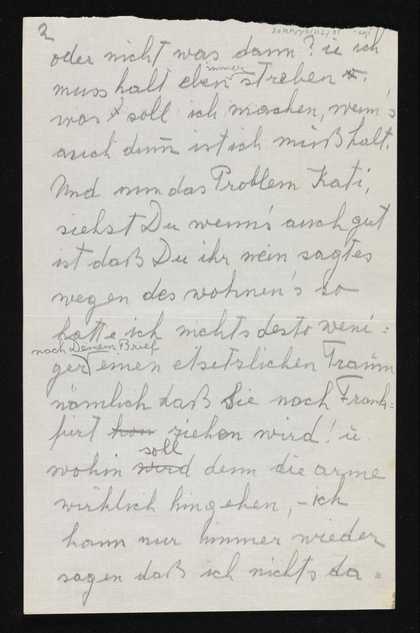 2
oder nicht was dann? u ich
muss halt eben immer streben
was soll ich machen, wenn's
auch dumm ist ich muß halt.
Und nun das Problem Kati,
siehst Du wenn's auch gut
ist daß Du ihr nein sagtes
wegen des wohnen's so
hatte ich nichts desto weni=
noch Deinem Brief
ger einen etsetzlichen Traum
nämlich daß Sie nach Frank=
furt ziehen wird! u
soll
wohin wird denn die arme
wirklich hingehen, - ich
kann nur immer wieder
sagen daß ich nichts da=